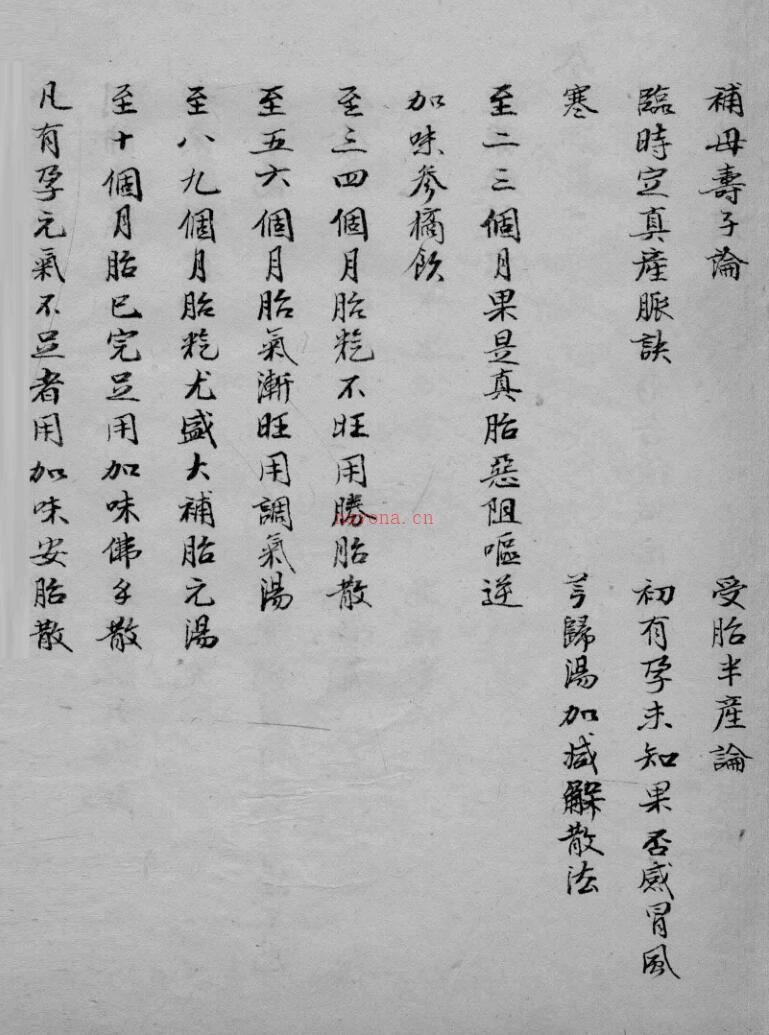 補母壽子論　受胎半産論
臨時定真産脈訣　初有孕未知果否感冒風
寒　芎歸湯加減解散法
至二三個月果是真胎惡阻嘔逆
加味參橘飲
至三四個月胎尨不旺用勝胎散
至五六個月胎氣漸旺用調氣湯
至八九個月胎尨尤盛大補胎元湯
至十個月胎已完足用加味佛手散
凡有孕元氣不足者用加味安胎散
nayona.cn